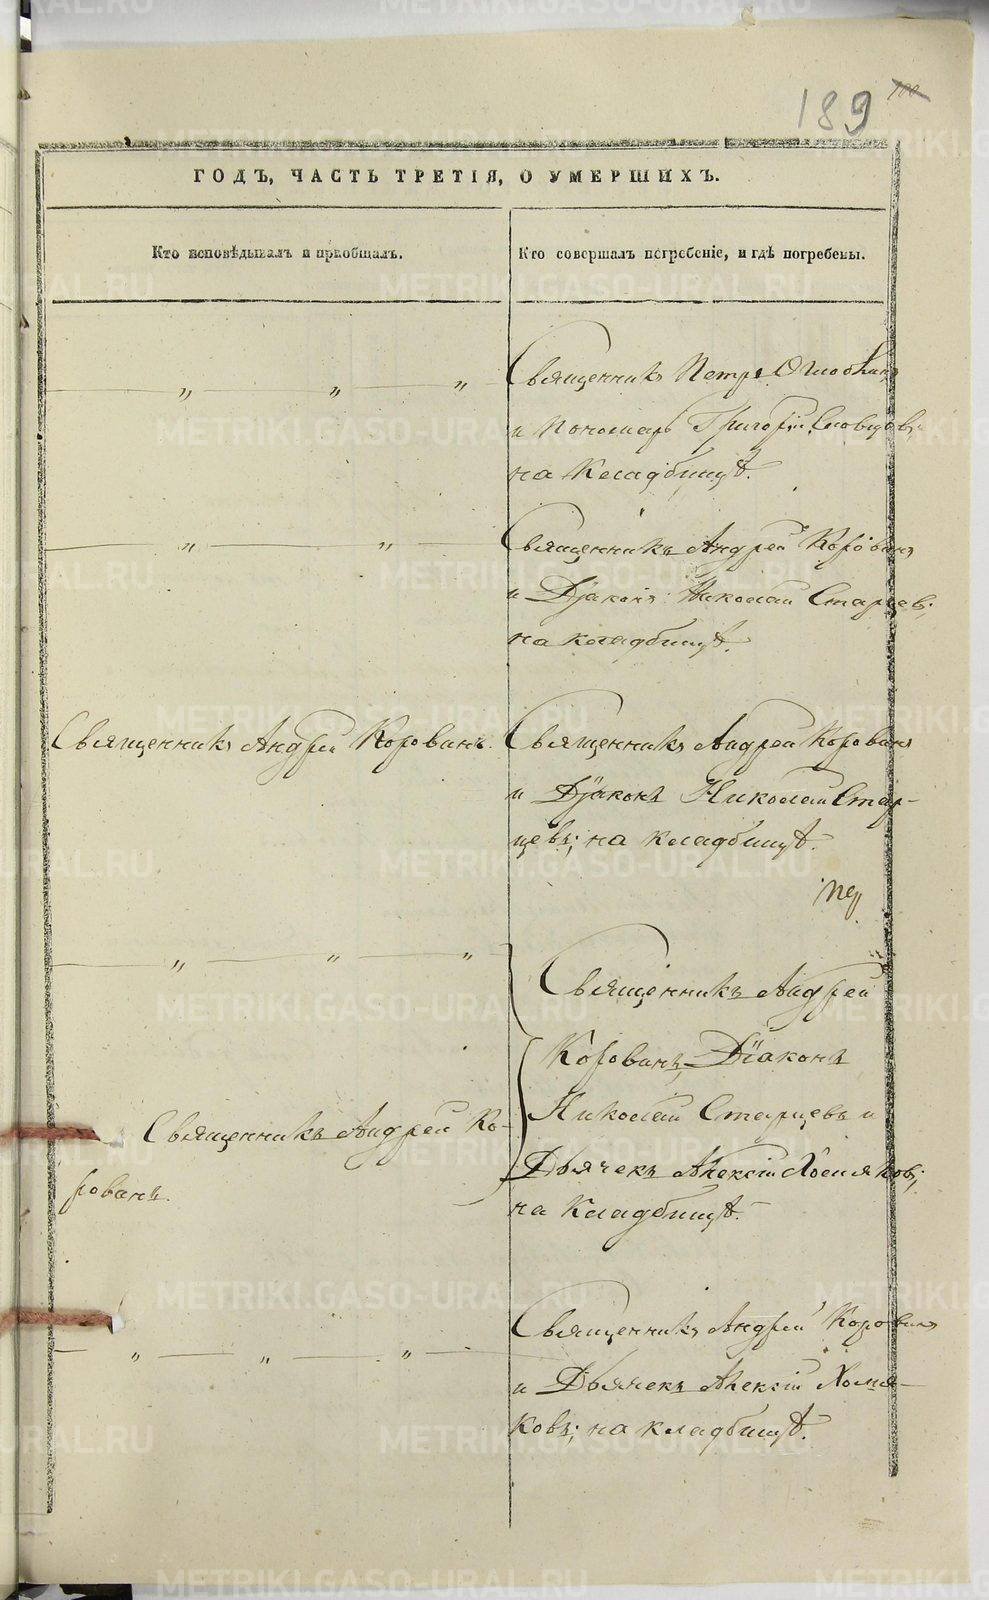 189
ГОДЪ, ЧАСТЬ ТРЕТІЯ, О УМЕРШИХЪ.
Кто исповѣдывалъ и пріобщалъ.
Кто совершалъ погребеніе, и гдѣ погребены.
Священникъ Петръ
и Пономарь Григорій Словцовъ;
на Кладбищѣ.
Священникъ Андрей Коровинъ
и Діаконъ Николай Старцев;
на кладбищѣ.
Священникъ Андрей Корованъ.
Священникъ Андрей Корованъ
и Діаконъ Николай Стар-
цевъ; на кладбищѣ.
Священникъ Андрей
Корованъ, Діаконъ
Николай Старцевъ и
Дьячекъ Алексій Хомяков;
на Кладбищѣ.
Священникъ Андрей Ко-
рованъ.
Священникъ Андрей Корованъ
и Дьячекъ Алексій Хомя-
ковъ; на кладбищѣ.
METRIKI.GASO-URAL.RU